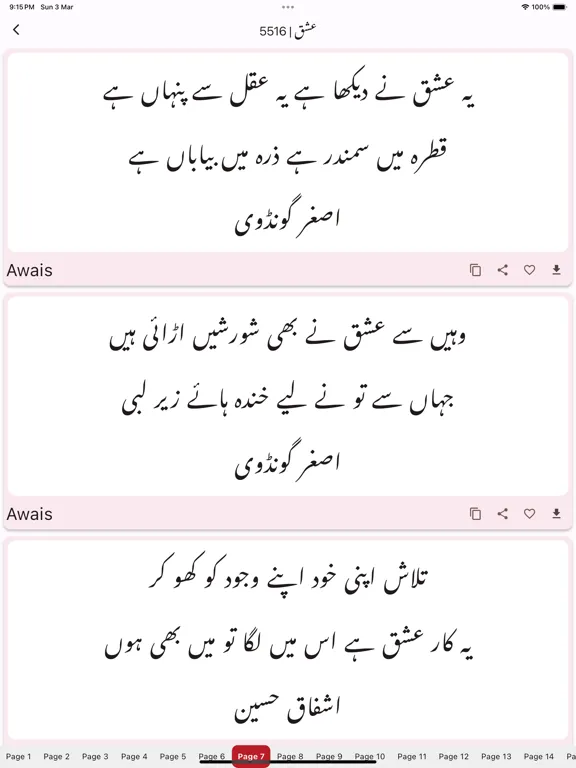 9:15 PM Sun 3 Mar
100%
عشق | 5516
یہ عشق نے دیکھا ہے یہ عقل سے پنہاں ہے
قطرہ میں سمندر ہے ذرہ میں بیاباں ہے
اصغر گونڈوی
Awais
وہیں سے عشق نے بھی شورشیں اڑائی ہیں
جہاں سے تو نے لیے خندہ ہائے زیر لبی
اصغر گونڈوی
Awais
تلاش اپنی خود اپنے وجود کو کھو کر
یہ کار عشق ہے اس میں لگا تو میں بھی ہوں
اشفاق حسین
Page 1 Page 2 Page 3 Page 4 Page 5 Page 6 Page 7 Page 8 Page 9 Page 10 Page 11 Page 12 Page 13 Page 14 Pa